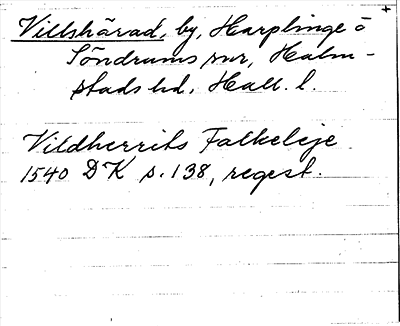 Villshärad, by, Harplinge o
Söndrums snr, Halm-
stads hd, Hall. l.
Vildherrits Falkeleje
1540 DK s. 138, regest.